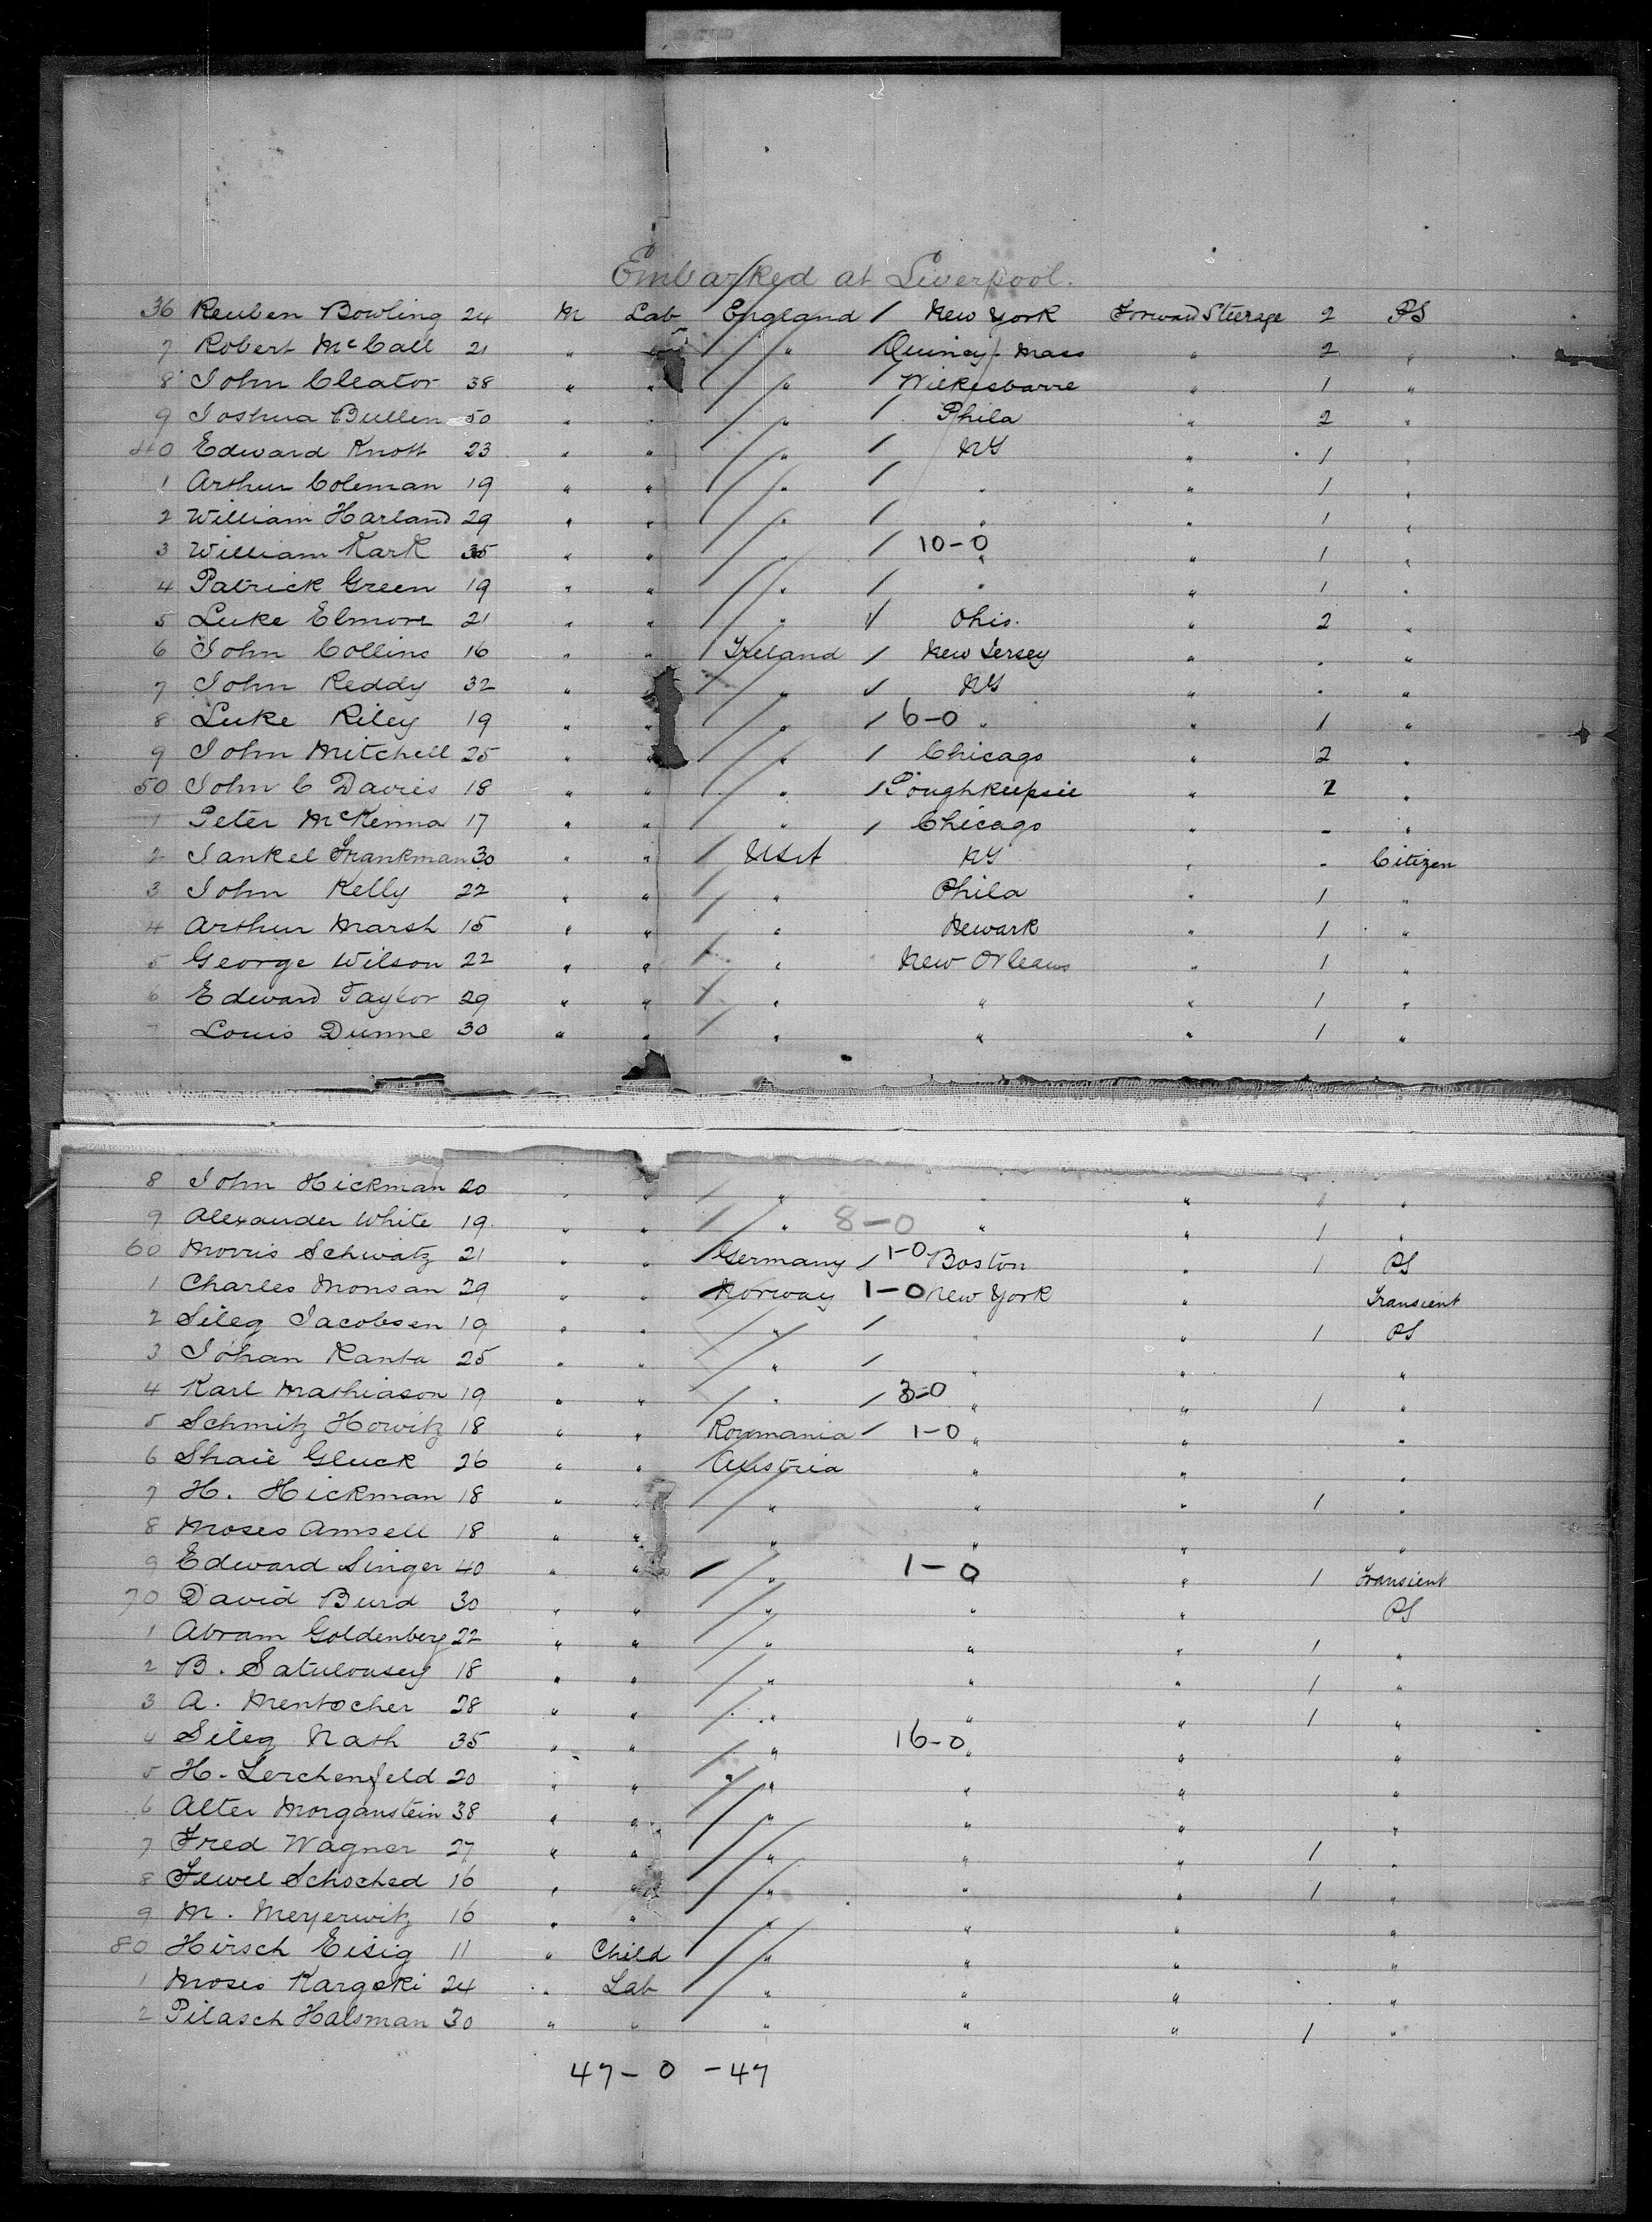 Embarked at Liverpool.
36 Reuben Bowling 24 M Lab England / New York Forward Steerage 2 PS
7 Robert McCall 21 " " " / Quincy Mass " 2 "
8 John Cleator 38 " " " / Wilkesbarre " 1 "
9 Joshua Bullen 50 " " " / Phila " 2 "
40 Edward Knott 23 " " " / NY " 1 "
1 Arthur Coleman 19 " " " / " " 1 "
2 William Harland 29 " " " / " " 1 "
3 William Kark 35 " " " / 10-0 " " 1 "
4 Patrick Green 19 " " " / " " 1 "
5 Luke Elmore 21 " " " / Ohio. " 2 "
6 John Collins 16 " " Ireland / New Jersey " - "
7 John Reddy 32 " " " / NY " - "
8 Luke Riley 19 " " " / 6-0 " " 1 "
9 John Mitchell 25 " " " / Chicago " 2 "
50 John C Davies 18 " " " / Poughkeepsie " 2 "
1 Peter McKenna 17 " " " / Chicago " - "
2 Jankel Frankman 30 " " / USA NY " - Citizen
3 John Kelly 22 " " / " Phila " 1 "
4 Arthur Marsh 15 " " / " Newark " 1 "
5 George Wilson 22 " " / " New Orleans " 1 "
6 Edward Taylor 29 " " / " " " 1 "
7 Louis Dunne 30 " " / " " " 1 "
8 John Hickman 20 " " / " " " 1 "
9 Alexander White 19 " " / " 8-0 " " 1 "
60 Morris Schwatz 21 " " Germany / 1-0 Boston " 1 PS
1 Charles Monsan 29 " " Norway 1-0 New York " Transient
2 Sileg Jacobsen 19 " " " / " " 1 PS
3 Johan Kanta 25 " " " / " " "
4 Karl Mathiason 19 " " " / 3-0 " " 1 "
5 Schmitz Howitz 18 " " Roumania / 1-0 " " "
6 Shaie Gluck 26 " " Austria " " "
7 H. Hickman 18 " " " " " 1 "
8 Moses Amsell 18 " " " " " "
9 Edward Singer 40 " " / " 1-0 " " 1 Transient
70 David Burd 30 " " " " " PS
1 Abram Goldenberg 22 " " " " " 1 "
2 B. Satulousey 18 " " " " " 1 "
3 A. Mentocher 28 " " " " " 1 "
4 Sileg Nath 35 " " " 16-0 " " "
5 H. Lerchenfeld 20 " " " " " "
6 Alter Morganstein 38 " " " " " "
7 Fred Wagner 27 " " " " " 1 "
8 Schoched 16 " " " " " 1 "
9 M. Meyerwitz 16 " " " " " "
80 Hirsch Eisig 11 " Child " " " "
1 Moses Kargoki 24 " Lab " " " "
2 Pilasch Halsman 30 " " " " " 1 "
47 - 0 - 47